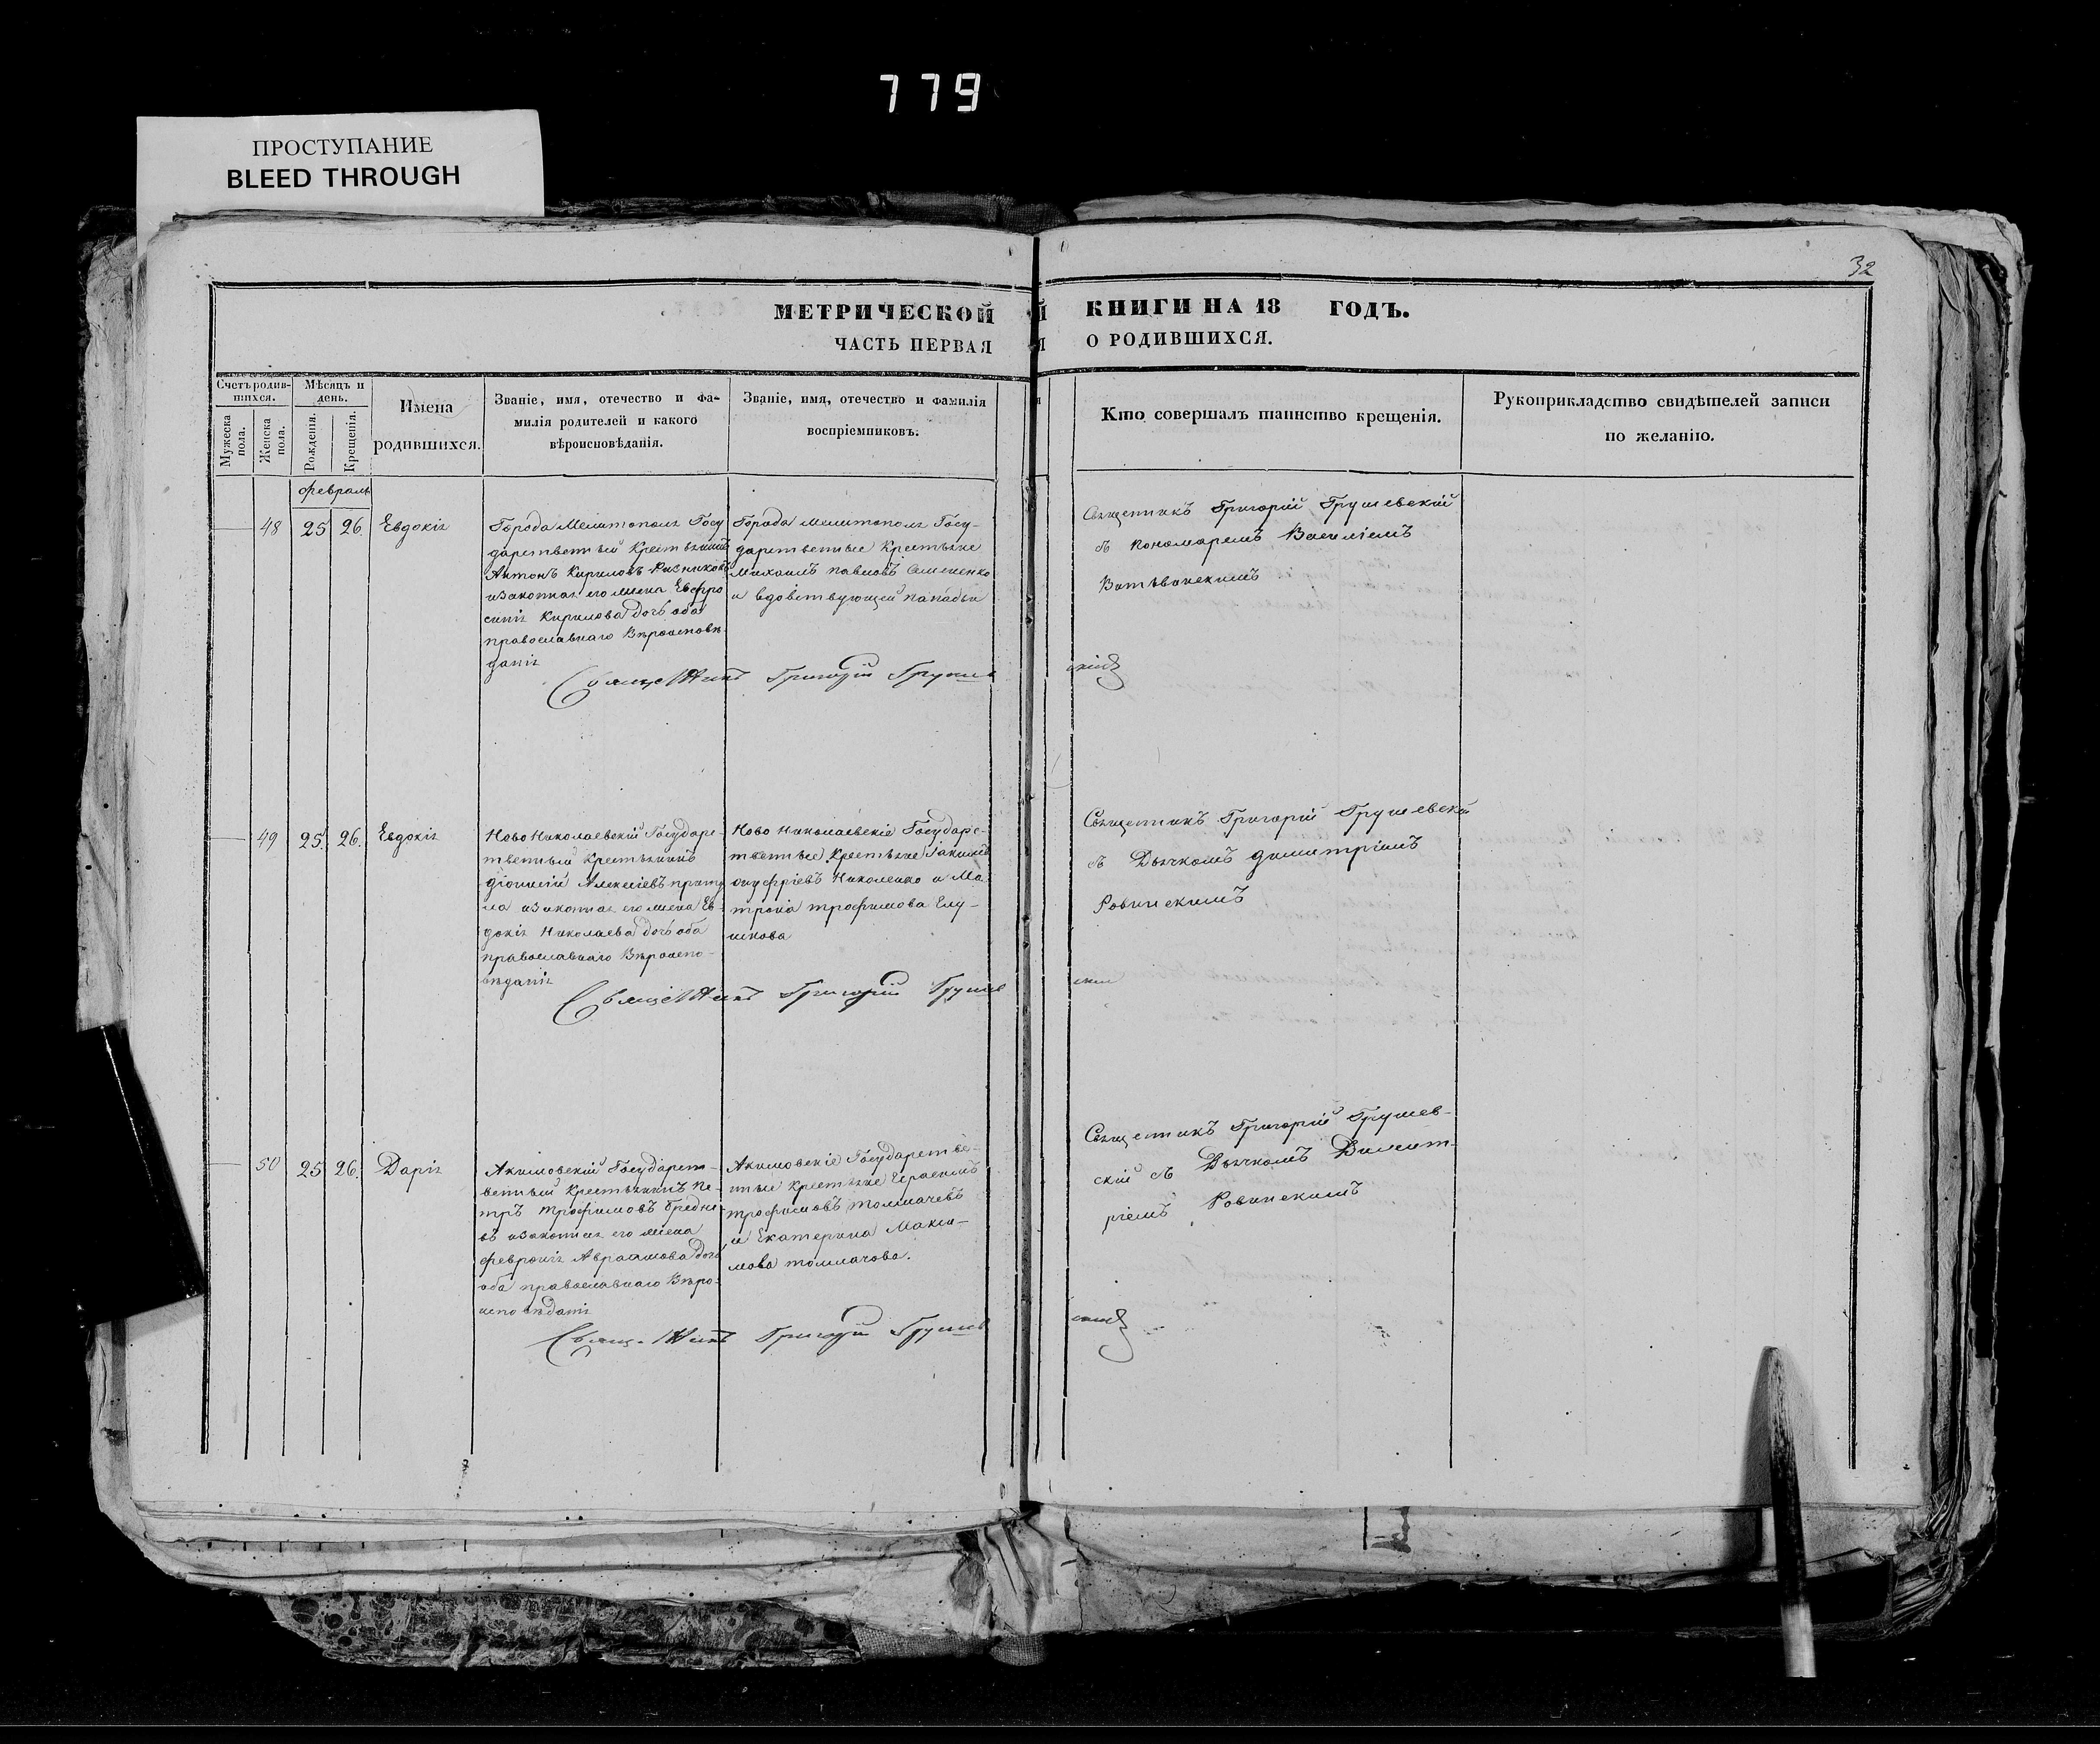 779
ПРОСТУПАНИЕ
BLEED THROUGH
32
МЕТРИЧЕСКОЙ
ЧАСТЬ ПЕРВАЯ
КНИГИ НА 18 ГОДЪ.
О РОДИВШИХСЯ.
Счетъ родив-
шихся.
Мужеска
пола.
Женска
пола.
Мѣсяцъ и
день.
Рожденія.
Крещенія.
Имена
родившихся.
Званіе, имя, отечество и фа-
милія родителей и какого
вѣроисповѣданія.
Званіе, имя, отечество и фамилія
воспріемниковъ.
Кто совершалъ таинство крещенія.
Рукоприкладство свидѣтелей записи
по желанію.
февраль
48
25
26
Евдокія
Города Мелитополя Госу
дарственный Крестьянинъ
Антонъ Кириловъ
изаконная его жена Евфро
синія Кирилова дочь оба
православнаго Вѣроисповѣ-
данія
Города Мелитополя Госу-
дарственные Крестьяне
Михаилъ Павловъ
и вдовствующей попадьи
Священникъ Григорій Грушевскій
съ Пономаремъ Василіемъ
Священникъ Григорій Грушев
скій
49
25
26
Евдокія
Ново Николаевскій Государс-
твенный Крестьянинъ
Діонисій Алексіевъ
изаконная его жена Ев-
докія Николаева дочь оба
православнаго Вѣроиспо-
вѣданія
Ново Николаевскіе Государс-
твенные Крестьяне Іакимъ
онуфріевъ Николенко и Ма-
трона трофимова
Священникъ Григорій Грушевскій
съ Дьячкомъ Димитріемъ
Ровинскимъ
Священникъ Григорій Грушев
скій
50
25
26
Дарія
Акимовскій Государст-
венный Крестьянинъ Пе-
тръ Трофимовъ
изаконная его жена
Февронія Авраамова дочь
оба православнаго Вѣро-
исповѣданія
Акимовскіе Государстве-
нные Крестьяне Герасимъ
трофимовъ толмачевъ
и Екатерина Макси-
мова толмачова.
Священникъ Григорій Грушев-
скій съ Дьячкомъ Димит-
ріемъ Ровинскимъ
Священникъ Григорій Грушев
скій